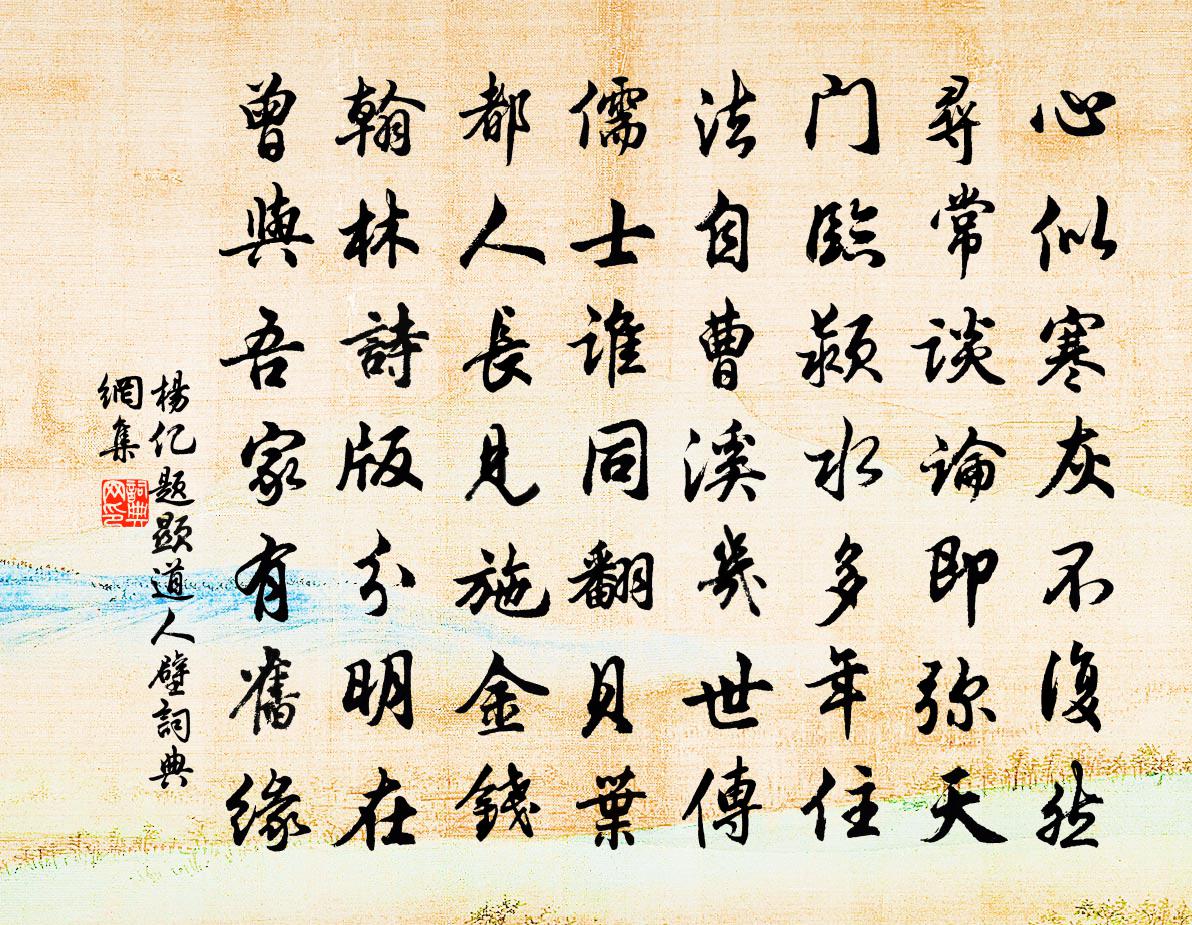 心似寒灰不復然
尋常談論即弥天
门臨颍水多年住
法自曹溪幾世傳
儒士誰同翻貝葉
都人長見施金錢
翰林詩版分明在
曾與吾家有舊緣
楊亿题题道人壁詞典
網集
詞典
网印